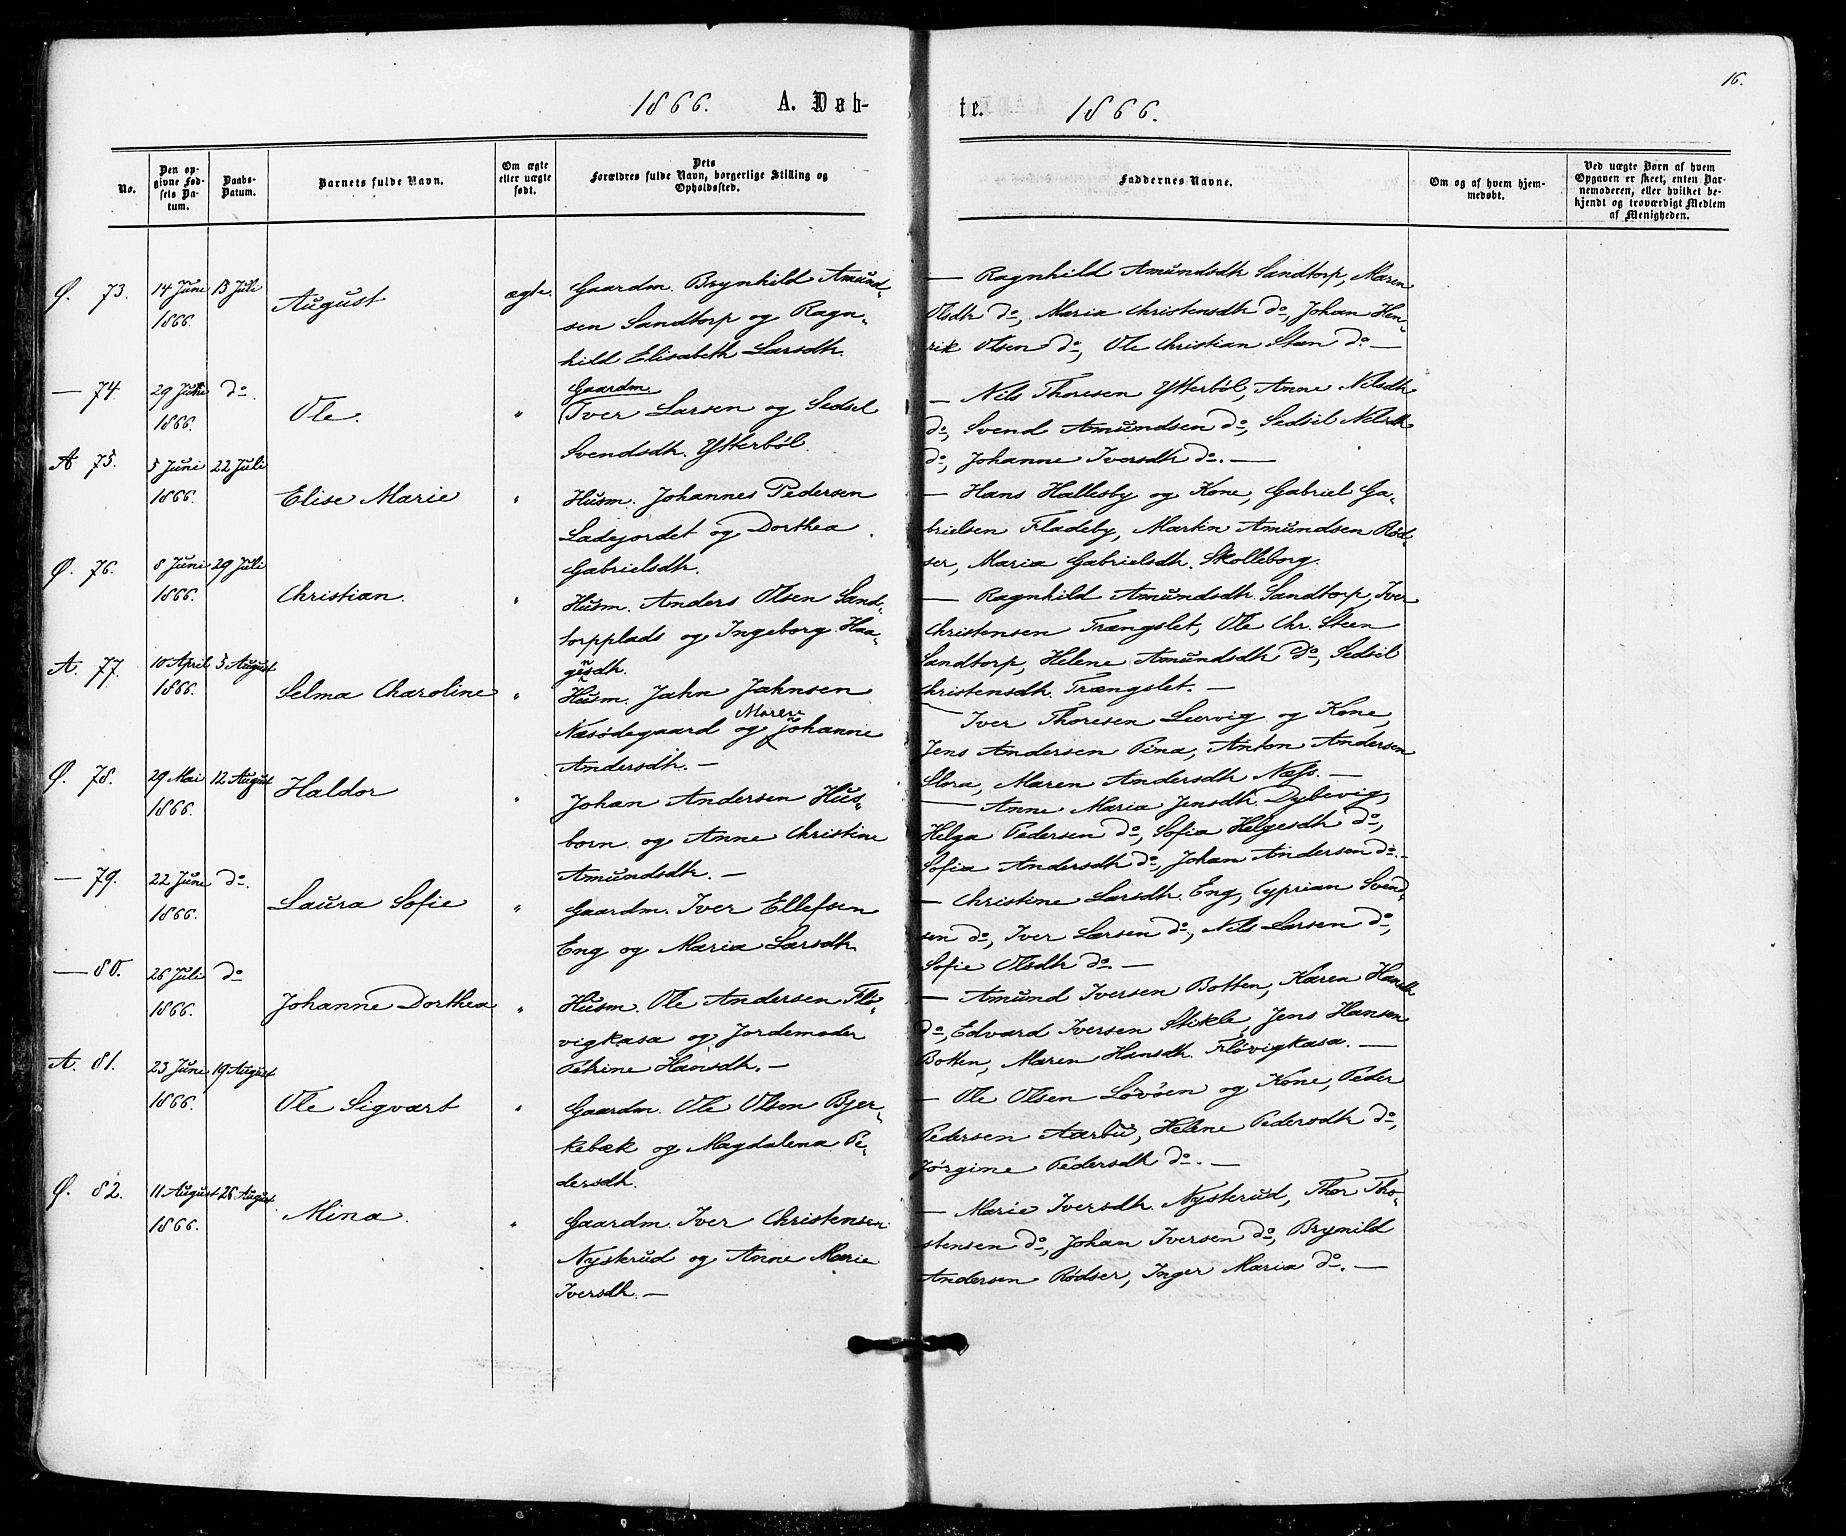 16.
1866. A. Døb-
te. 1866.
No.
Den opgivne Fødsels Datum.
Daabs-Datum.
Barnets fulde Navn.
Om ægte eller uægte født.
Dets Forældres fulde Navn, borgerlige Stilling og Opholdssted.
Faddernes Navne.
Om og af hvem hjemmedøbt.
Ved uægte Børn af hvem Opgaven er skeet, enten Barnemoderen, eller hvilket bekjendt og troværdigt Medlem af Menigheden.
Ø. 73. 14 Juni 1866. 15 Juli August ægte.
Gaardm. Brynhild Amund-
sen Sandtorp og Ragn-
hild Elisabeth Larsdtr.
— Ragnhild Amundsdtr Sandtorp, Maren
Olsdtr do, Maria Christensdtr do, Johan Hen-
rik Olsen do, Ole Christian Steen do —
— 74. 29 Juni 1866. do. Ole. "
Gaardm.
Iver Larsen og Sedsel
Svendsdtr. Ytterböl.
— Nils Thoresen Ytterböl, Anne Nilsdtr
do, Svend Amundsen do, Sedsil Nilsdtr
do, Johanne Iversdtr do. —
A 75. 5 Juni 1866. 22 Juli Elise Marie "
Husm. Johannes Pedersen
Ladejordet og Dorthea
Gabrielsdtr.
— Hans Hallesby og Kone, Gabriel Ga-
brielsen Fladeby, Martin Amundsen Rød-
ser, Maria Gabrielsdtr. Skolleborg.
Ø. 76. 8 Juni 1866. 29 Juli Christian. "
Husm. Anders Olsen Sand-
torpplads og Ingeborg Haa-
gensdtr.
— Ragnhild Amundsdtr. Sandtorp, Iver
Christensen Trængslet, Ole Chr. Steen
Sandtorp, Helene Amundsdtr do, Sedsil
Christensdtr. Trængslet. —
A. 77. 10 April 1866. 5 August Selma Charoline "
Husm. Jahn Jahnsen
Næsödegaard og Maren Johanne
Andersdtr. —
— Iver Thoresen Lervig og Kone,
Jens Andersen Pina, Anton Andersen
Stora, Maren Andersdtr Næss. —
Ø. 78. 29 Mai 1866. 12 August Haldor "
Johan Andersen Hus-
born og Anne Christine
Amundsdtr. —
— Anne Maria Jensdtr. Dybevig,
Helga Pedersen do, Sofia Helgesdtr do,
Sofia Andersdtr do, Johan Andersen do. —
— 79. 22 Juni 1866. do. Laura Sofie "
Gaardm. Iver Ellefsen
Eng og Maria Larsdtr.
— Christine Larsdtr. Eng, Cyprian Svend-
sen do, Iver Larsen do, Nils Larsen do,
Sofie Olsdtr do. —
— 80. 26 Juli 1866. do Johanne Dorthea "
Husm. Ole Andersen Flö-
vigkasa og Jordemoder
Petrine Hansdtr. —
— Amund Iversen Botten, Karen Hansdtr
do, Edvard Iversen Stikle, Jens Hansen
Botten, Maren Hansdtr. Flövigkasa. —
A. 81. 23 Juni 1866. 19 August Ole Sigvart "
Gaardm. Ole Olsen Bjer-
kebæk og Magdalena Pe-
dersdtr.
— Ole Olsen Lövöen og Kone, Peder
Pedersen Aarbu, Helene Pedersdtr do,
Jörgine Pedersdtr do. —
Ø. 82. 11 August 1866. 26 August Mina. "
Gaardm. Iver Christensen
Nystrud og Anne Marie
Iversdtr. —
— Marie Iversdtr. Nystrud, Thor Tho-
stensen do, Johan Iversen do, Brynild
Andersen Rødser, Inger Maria do. —